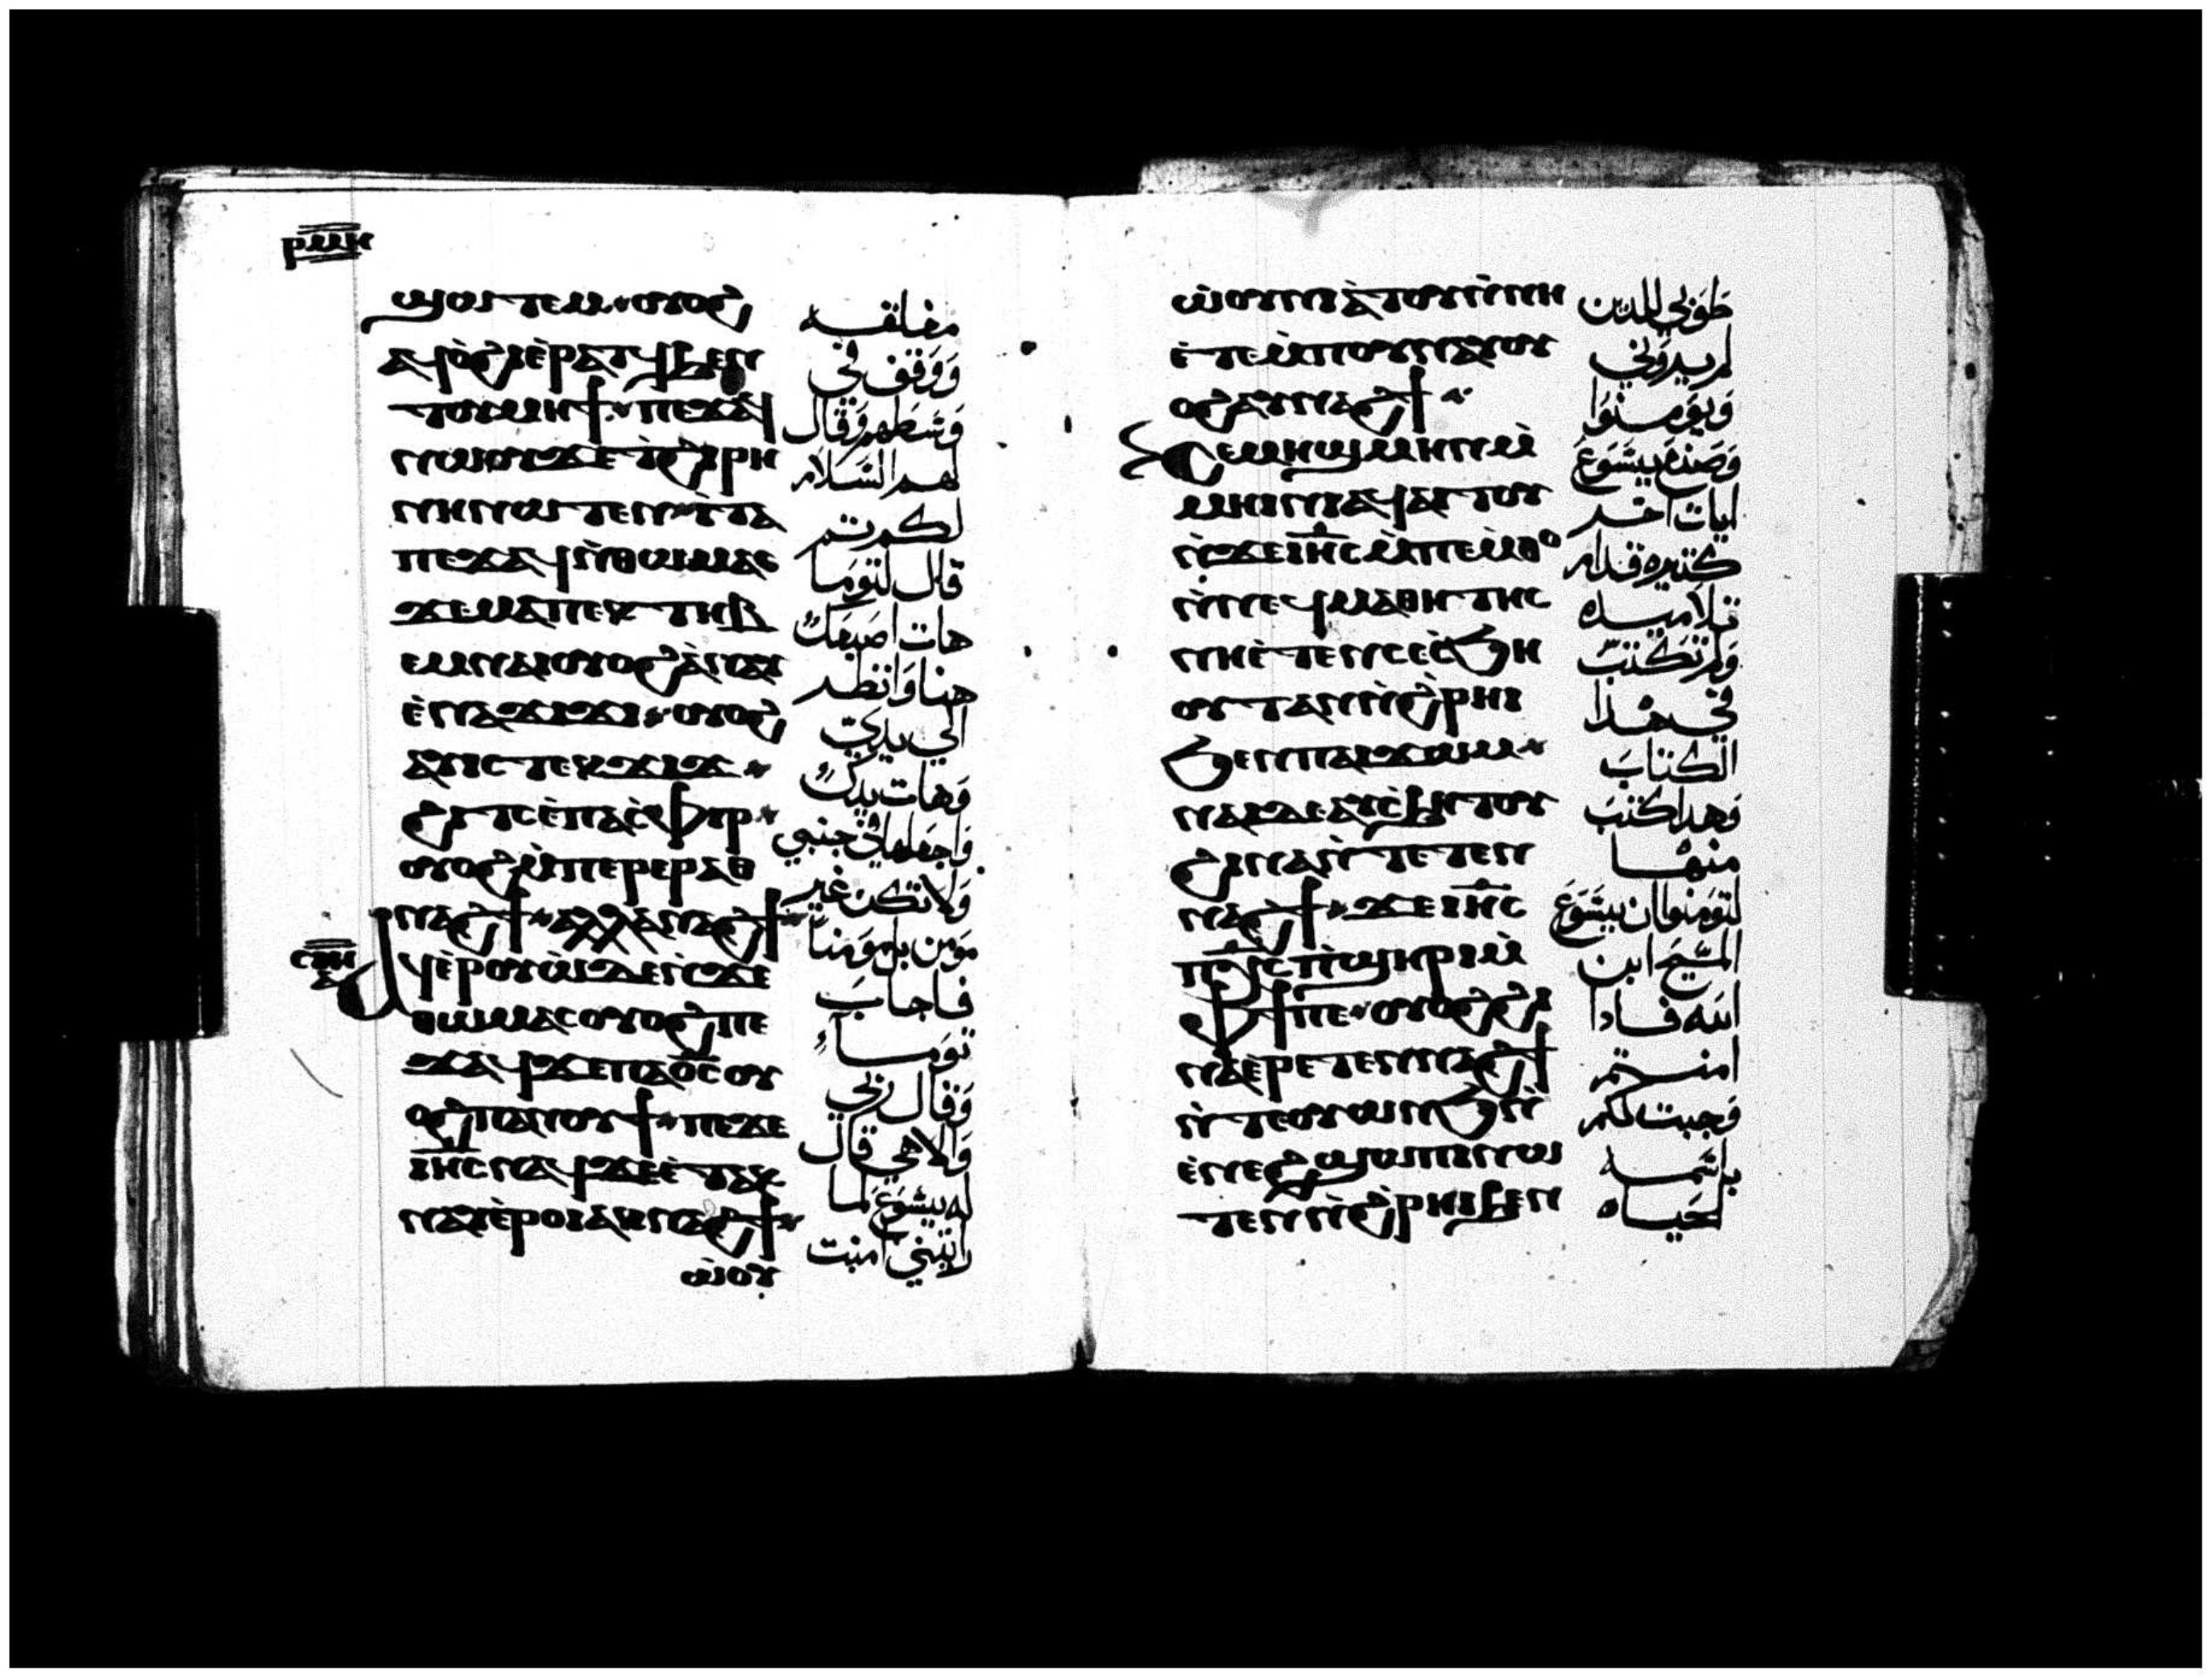 ⲣⲙⲏ
ϣⲟⲩⲧⲉⲙ ⲟⲩⲟϩ
ⲁϥⲟ̀ϩⲓⲉ̀ⲣⲁⲧϥϧⲉⲛ
ⲧⲟⲩⲙⲏϯ ⲡⲉϫⲁϥ
ⲛⲱⲟⲩϫⲉⲧ̀ϩⲓⲣⲏ
ⲛⲏⲛⲱⲧⲉⲛ ⲓ̀ⲧⲁ
ⲡⲉϫⲁϥⲛ̀ⲑⲱⲙⲁⲥ
ϫⲉⲙⲁⲡⲉⲕⲧⲏⲃ
ⲉⲙⲛⲁⲓⲟⲩⲟϩⲁ̀ⲛⲁⲩ
ⲉ̀ⲛⲁϫⲓϫⲓ ⲟⲩⲟϩ
ⲁⲛⲓⲥⲧⲉⲕϫⲓϫ
ϩⲓⲧⲥⲉ̀ⲡⲁⲥ̀ⲫⲓⲣ
ⲟⲩⲟϩⲙ̀ⲡⲉⲣⲉⲣⲁⲑ
ⲛⲁϩϯ ⲁⲗⲗⲁⲛⲁϩϯ
ⲁϥⲉ̀ⲣⲟⲩⲱ̀ⲇⲉⲛ̀ϫⲉ
ⲑⲱⲙⲁⲥⲟⲩⲟϩⲡⲉ
ϫⲁϥϫⲉⲡⲁⲟ̅ⲥ̅ⲟⲩ
ⲟϩⲡⲁⲛⲟⲩϯ ⲡⲉϫⲉ
ⲓⲏ̅ⲥ̅ⲛⲁϥϫⲉⲉ̀ⲧⲁⲕ
ⲛⲁⲩⲉ̀ⲣⲟⲓⲁⲕⲛⲁϩϯ
ⲱⲟⲩ
مغلقه
وَوَقف في
وَسَطهم وَقال
لهم السَلام
لكم تم
قال لتومَا
هات اصبعَك
هنا وَانظر
الي يديَّ
وَهات يدك
وَاجعلها في جنبي
وَلا تكن غير
مَومن بل مَومنا
فاجابَ
تومَا
وَقال ربي
وَالاهي قال
له يسُوَع لما
رايتني امنت
ⲱ̀ⲟⲩⲛⲓⲁ̀ⲧⲟⲩⲛ̀ⲛⲏ
ⲉ̀ⲧⲉⲙ̀ⲡⲟⲩⲛⲁⲩⲟⲩ
ⲟϩⲁⲩⲛⲁϩϯ
ϩⲉⲙⲏϣⲙⲏⲛⲙ̀
ⲙⲏⲓⲛⲓⲁϥⲁⲓⲧⲟⲩ
ⲛ̀ϫⲉⲓⲏ̅ⲥ̅ⲙ̀ⲡⲉⲙⲑⲟ
ⲛ̀ⲛⲉϥⲙⲁⲑⲏⲧⲏⲥ
ⲛⲏⲉ̀ⲧⲉⲛⲥⲉⲥ̀ϧⲏ
ⲟⲩⲧⲁⲛⲛ̀ϩ̀ⲣⲏⲓ
ϧⲉⲛⲡⲁⲓϫⲱⲙ
ⲛⲁⲓⲇⲉⲁⲩⲥ̀ϧⲏⲧⲟⲩ
ϩⲓⲛⲁⲛ̀ⲧⲉⲧⲉⲛ
ⲛⲁϩϯ ϫⲉⲓⲏ̅ⲥ̅
ⲡ̅ⲭ̅ⲥ̅ⲡ̀ϣⲏⲣⲓⲙ̀
ⲫϯⲡⲉ ⲟⲩⲟϩϩⲓ
ⲛⲁⲉ̀ⲣⲉⲧⲉⲛⲛⲁϩϯ
ⲛ̀ⲧⲉⲟⲩⲱⲛϧⲛ̀
ⲉ̀ⲛⲉϩϣⲱⲡⲓⲛⲱ
ⲧⲉⲛⲛ̀ϩ̀ⲣⲏⲓϧⲉⲛ
طوَبي للدين
لم يروَني
وَيوَمنوَا
وَصَنع يسُوَع
ايات اخر
كتيره قدام
تلاميده
وَلم تكتبَ
في هدا
الكتابَ
وَهدا كتبَ
منها
لتوَمنوا ان يسُوَع
المسَيح ابن
الله فادا
امنتم
وَجبت لكم
باسَمه
الحَياه